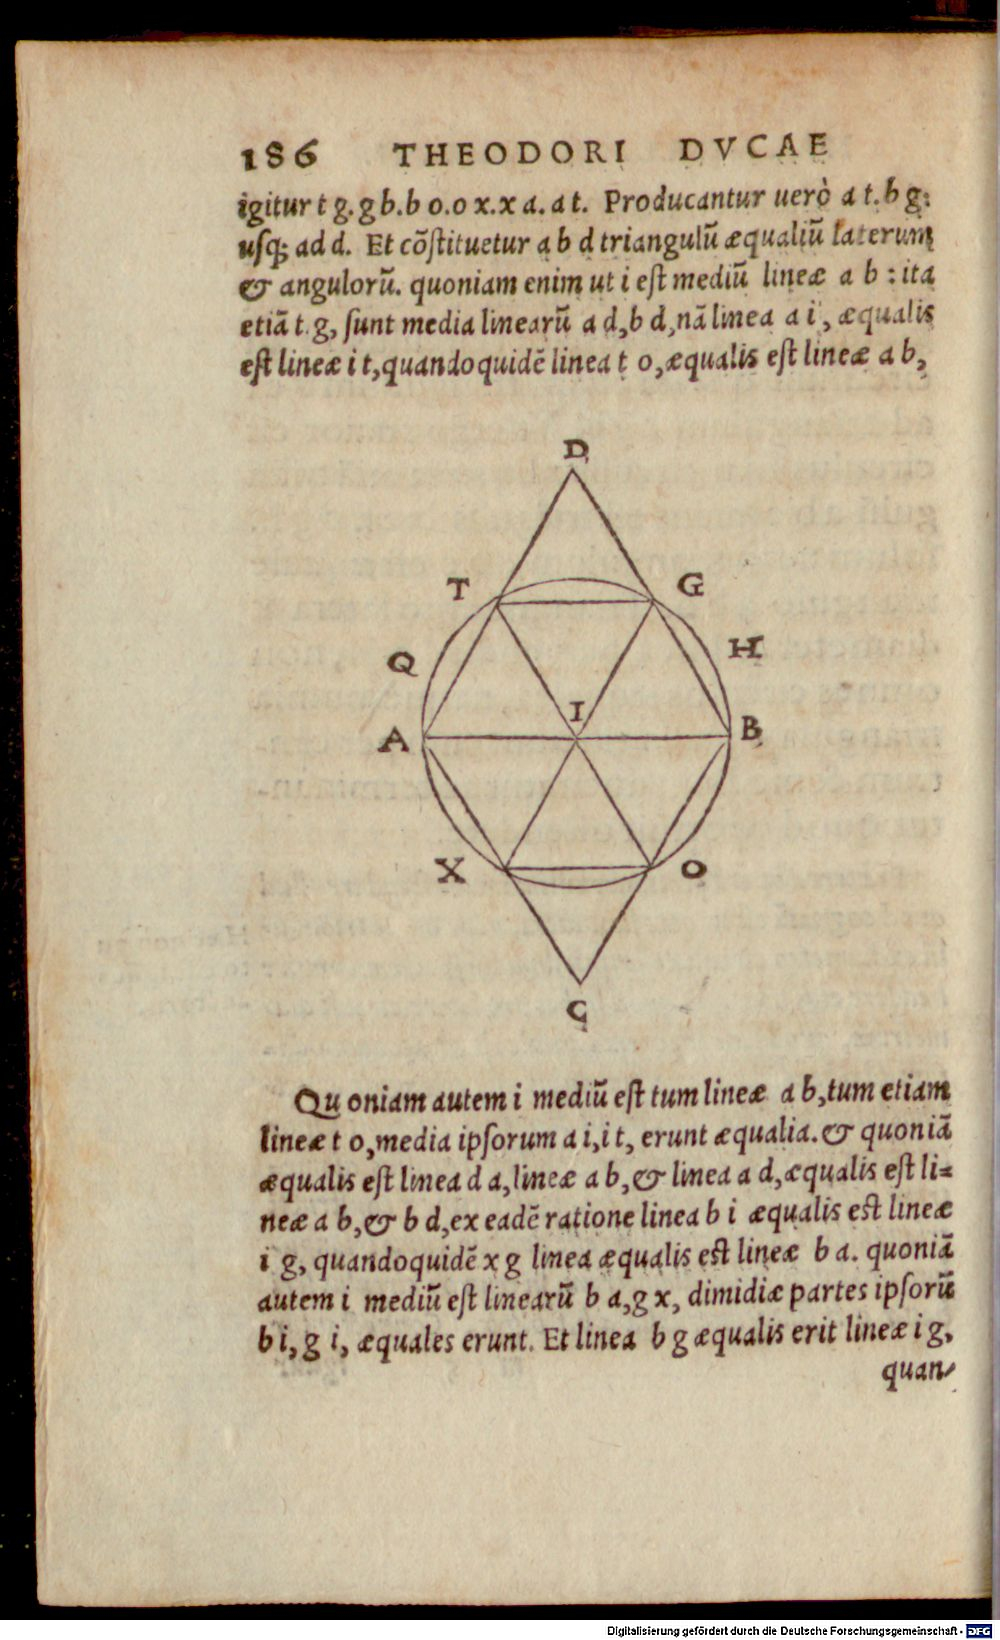 186 THEODORI DVCAE
igitur t g. g b. b o. o x. x a. a t. Producantur uerò a t. b g:
usq; ad d. Et cõstituetur a b d triangulũ æqualiũ laterum
& angulorũ. quoniam enim ut i est mediũ lineæ a b : ita
etiã t. g, sunt media linearũ a d, b d, nã linea a i, æqualis
est lineæ i t, quandoquidẽ linea t o, æqualis est lineæ a b,
D
T G
Q H
I
A B
X O
C
Quoniam autem i mediũ est tum lineæ a b, tum etiam
lineæ t o, media ipsorum a i, i t, erunt æqualia. & quoniã
æqualis est linea d a, lineæ a b, & linea a d, æqualis est li=
neæ a b, & b d, ex eadẽ ratione linea b i æqualis est lineæ
i g, quandoquidẽ x g linea æqualis est lineæ b a. quoniã
autem i mediũ est linearũ b a, g x, dimidiæ partes ipsorũ
b i, g i, æquales erunt. Et linea b g æqualis erit lineæ i g,
quan-
Digitalisierung gefördert durch die Deutsche Forschungsgemeinschaft - DFG